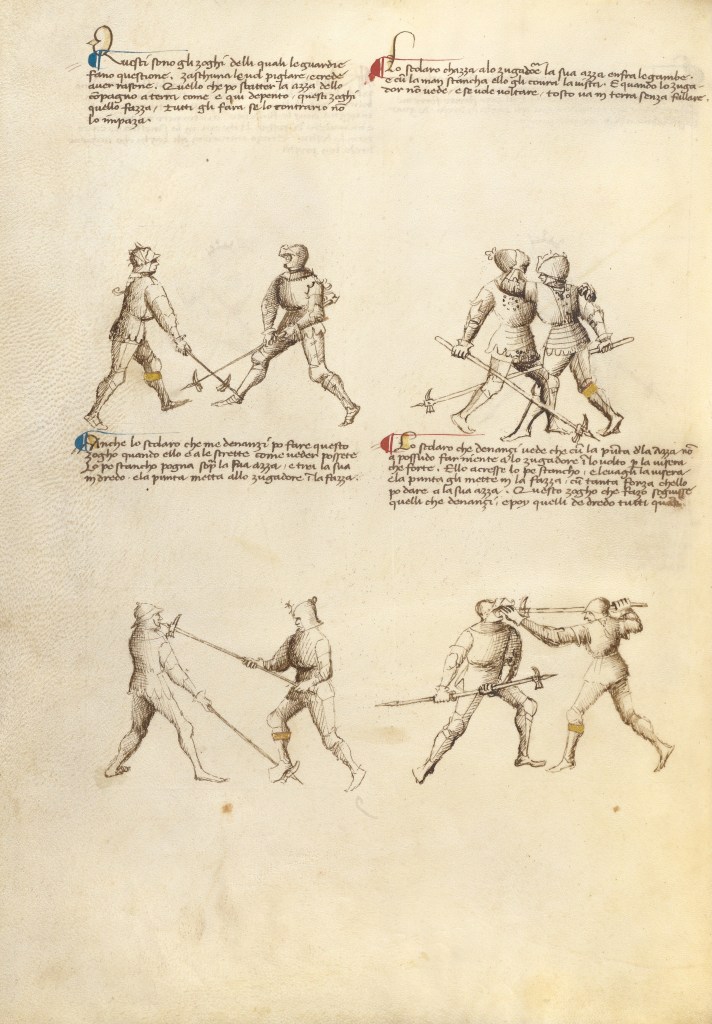 Questi sono gli zoghi delli quali le guardie
fano questione. zaschuna le vol pigliare, e crede
aver rasone. Quello che po sbatter la azza dello
cōpagno a terra come e qui depento, questi zoghi
quello fazza, tutti gli fara se lo contrario nō
lo impaza.
Lo scolaro chazza a lo zugadoř la sua azza enfra le gambe.
e cū la man stancha ello gli covra la vista. E quando lo zuga-
dor nō vede, e se vole voltare, tosto va in terra senza fallare.
Anche lo scolaro che me denanzi po fare questo
zogho quando ello e a le strette come veder possete
Lo pe stancho pogna sopra la sua azza, e tra la sua
indredo, e la punta metta allo zugadore ī la fazza.
Lo scolaro che denanzi vede che cū la pūta dla azza nō
possudo far niente a lo zugadore ī lo volto p la visera
che forte. Ello acresse lo pe stancho, e levagli la visera
e la punta gli mette in la fazza, cū tanta forza chello
po dare a la sua azza. Questo zogho che fazo seguisse
quelli che denanzi, e poy quelli de dredo tutti